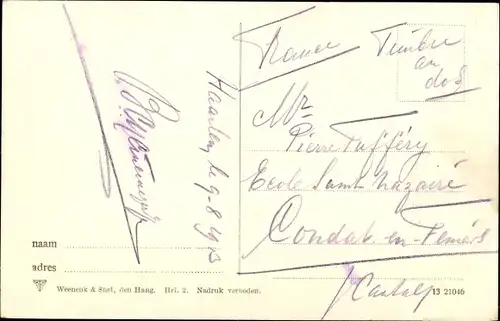 France
Timbre
au
dos
Haarlem le 9-8 1913
Mr
Pierre Tufféry
Ecole Saint Nazaire
Condat-en-Feniers
(Cantal)
naam
adres
Weenenk & Snel, den Haag. Hrl. 2. Nadruk verboden.
13 21046